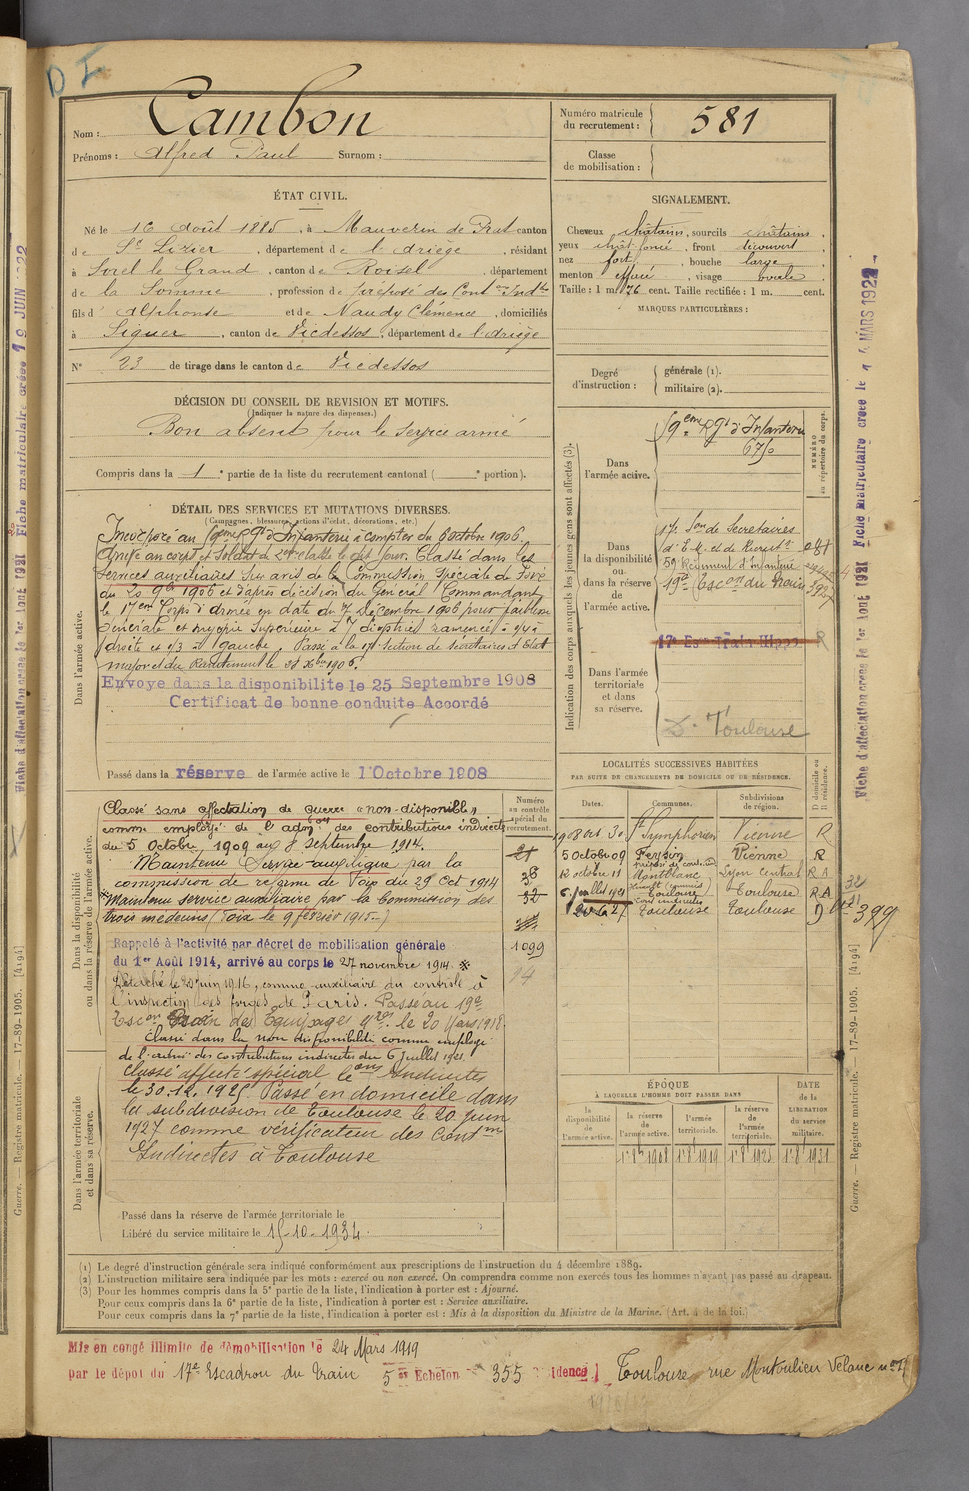 D I
Nom : Cambon
Prénoms : Alfred Paul Surnom :
Numéro matricule
du recrutement : 581
Classe
de mobilisation :
ÉTAT CIVIL.
Né le 16 Août 1885, à Mauvezin de Prat canton
de St Lizier, département de l'Ariège, résidant
à Sorel le Grand, canton de Roisel, département
de la Somme, profession de préposé des Contons Indtes
fils d' Alphonse et de Naudy Clémence, domiciliés
à Siguer, canton de Vicdessos, département de l'Ariège
N° 23 de tirage dans le canton de Vicdessos
SIGNALEMENT.
Cheveux châtains, sourcils châtains,
yeux chât foncé, front découvert,
nez fort, bouche large,
menton effacé, visage ovale,
Taille : 1 m. 76 cent. Taille rectifiée : 1 m. cent.
MARQUES PARTICULIÈRES :
Degré
d'instruction :
générale (1).
militaire (2).
DÉCISION DU CONSEIL DE REVISION ET MOTIFS.
(Indiquer la nature des dispenses.)
Bon absent pour le service armé
Compris dans la 1e partie de la liste du recrutement cantonal ( e portion).
DÉTAIL DES SERVICES ET MUTATIONS DIVERSES.
(Campagnes, blessures, actions d'éclat, décorations, etc.)
Dans l'armée active.
Incorporé au 59eme Rgt d'Infanterie à compter du 6 octobre 1906.
Arrivé au corps et Soldat de 2e classe le dit jour. Classé dans les
services auxiliaires sur avis de la Commission Spéciale de Foix
du 20 9bre 1906 et d'après décision du Général Commandant
le 17eme Corps d'Armée en date du 7 Décembre 1906 pour faiblesse
Générale et myopie supérieure à 7 dioptries ramenée à
droite et à gauche. Passé à la 17e Section de secrétaires d'Etat
major et du Recrutement le 28 Xbre 1906.
Envoyé dans la disponibilité le 25 Septembre 1908
Certificat de bonne conduite Accordé
Passé dans la réserve de l'armée active le 1 Octobre 1908
Indication des corps auxquels les jeunes gens sont affectés (3).
NUMÉRO
au répertoire du corps.
Dans
l'armée active.
59eme Rgt d'Infanterie
6750
Dans
la disponibilité
ou
dans la réserve
de
l'armée active.
17e Son de Secrétaires
d'E.M. et de Recrutt
59 Régiment d'Infanterie
19e Escon du train
17e Esc Train
Dans l'armée
territoriale
et dans
sa réserve.
D. Toulouse
Dans la disponibilité
ou dans la réserve de l'armée active.
Numéro
au contrôle
spécial du
recrutement.
Classé sans affectation de guerre "non-disponible"
comme employé de l'admon des contributions indirectes
du 5 Octobre 1909 au 8 septembre 1914.
Maintenu Service auxiliaire par la
commission de réforme de Foix du 29 Oct 1914
* Maintenu service auxiliaire par la Commission des
trois médecins (Foix le 9 février 1915.)
Rappelé à l'activité par décret de mobilisation générale
du 1er Août 1914, arrivé au corps le 27 novembre 1914. *
Détaché le 20 juin 1916, comme auxiliaire du contrôle à
l'inspection des forges de Paris. Passé au 19e
Escon Train des Equipages Mres le 20 Mars 1918.
Classé dans la non disponibilité comme employé
de l'admon des contributions indirectes du 6 Juillet 1921.
21
38
32
1099
14
Dans l'armée territoriale
et dans sa réserve.
Classé affecté spécial Contons Indirectes
le 30.12.1925. Passé en domicile dans
la subdivision de Toulouse le 20 juin
1927 comme vérificateur des Contons
Indirectes à Toulouse
Passé dans la réserve de l'armée territoriale le
Libéré du service militaire le 15-10-1934.
LOCALITÉS SUCCESSIVES HABITÉES
PAR SUITE DE CHANGEMENTS DE DOMICILE OU DE RÉSIDENCE.
Dates. Communes. Subdivisions
de région. D domicile ou
R résidence.
1908 oct 30 St Symphorien Vienne R
5 Octobre 09 Feyzin Vienne R
12 octobre 11 Montblanc Lyon Central R.A
6 juillet 1921 Toulouse Toulouse R A
20 6 27 Toulouse Toulouse D
399
ÉPOQUE
À LAQUELLE L'HOMME DOIT PASSER DANS
la
disponibilité
de
l'armée active.
la réserve
de
l'armée active.
l'armée
territoriale.
la réserve
de
l'armée
territoriale.
DATE
de la
LIBÉRATION
du service
militaire.
1er 8bre 1908 1er 8bre 1919 1er 8bre 1925 1er 8bre 1931
(1) Le degré d'instruction générale sera indiqué conformément aux prescriptions de l'instruction du 4 décembre 1889.
(2) L'instruction militaire sera indiquée par les mots : exercé ou non exercé. On comprendra comme non exercés tous les hommes n'ayant pas passé au drapeau.
(3) Pour les hommes compris dans la 5e partie de la liste, l'indication à porter est : Ajourné.
Pour ceux compris dans la 6e partie de la liste, l'indication à porter est : Service auxiliaire.
Pour ceux compris dans la 7e partie de la liste, l'indication à porter est : Mis à la disposition du Ministre de la Marine. (Art. 4 de la loi.)
Mis en congé illimité de démobilisation le 24 Mars 1919
par le dépôt du 17e Escadron du train 5e Echelon 355 Résidence] Toulouse rue Montoulieu Vélane no
Fiche d'affectation créée le 1er Août 1921 Fiche matriculaire créée le 19 JUIN 1922
Fiche d'affectation créée le 1er Août 1921 Fiche matriculaire créée le 14 MARS 1922
Guerre. — Registre matricule. — 17-89-1905. [4194]
Guerre. — Registre matricule. — 17-89-1905. [4194]